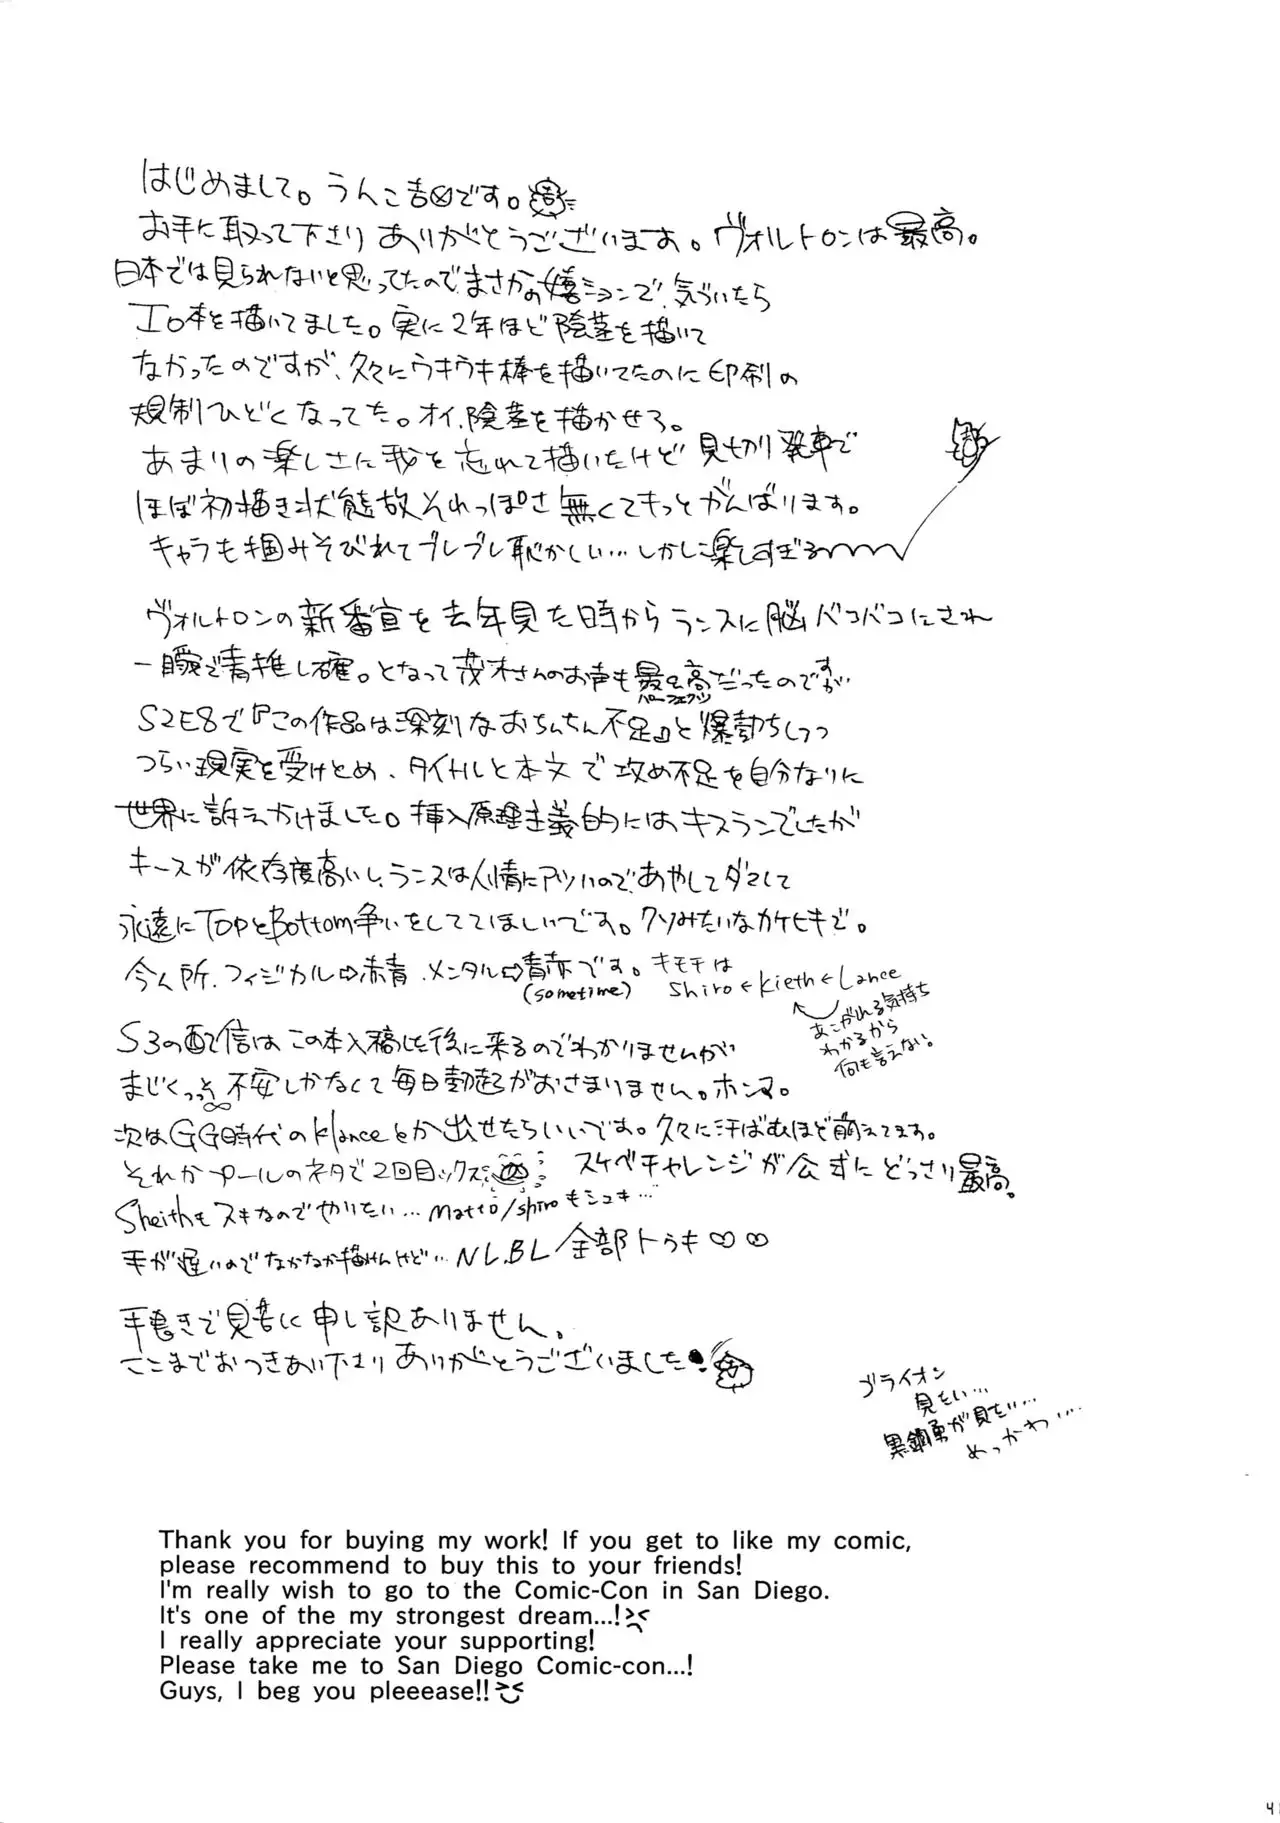 はじめまして。うんこ吉です。
お手に取って下さり ありがとうございます。ヴォルトロンは最高。
日本では見られないと思ってたのでまさかの嬉ションで、気づいたら
エロ本を描いてました。実に2年ほど陰茎を描いて
なかったのですが、久々にウキウキ棒を描いてたのに印刷の
規制ひどくなってた。オイ、陰茎を描かせろ。
あまりの楽しさに我を忘れて描いたけど 見切り発車で
ほぼ初描き状態故それっぽさ無くてもっとがんばります。
キャラも掴みそびれてブレブレ恥かしい…しかし楽しすぎる
ヴォルトロンの新番宣を去年見た時からランスに脳バコバコにされ
一瞬で青推し確。となって茂木さんのお声も最&高だったのですが
パーフェクツ
S2E8で『この作品は深刻なおちんちん不足』と爆勃ちしつつ
つらい現実を受けとめ、タイトルと本文で攻め不足を自分なりに
世界に訴えかけました。挿入原理主義的にはキスランでしたが
キースが依存度高いし、ランスは人情にアツいので、あやしてダマして
永遠にTopとBottom争いをしててほしいです。クソみたいなカケヒキで。
今ん所、フィジカル⇨赤青、メンタル⇨青赤です。キモチは
(sometime) shiro←kieth←Lance
あこがれる気持ち
わかるから
何も言えない。
S3の配信はこの本入稿した後に来るのでわかりませんが
まじくっっそ不安しかなくて毎日勃起がおさまりません。ホンマ。
次はGG時代のklanceとか出せたらいいです。久々に汗ばむほど萌えてます。
それかプールのネタで2回目ックス スケベチャレンジが公式にどっさり最高。
Sheithもスキなのでやりたい…Matto/shiroもシュキ…
手が遅いのでなかなか描けんけど…NL.BL全部トゥキ
手書きで見苦に申し訳ありません。
ここまでおつきあい下さりありがとうございました
ゴライオン
見たい…
黒鋼勇が見たい…
めっかわ…
Thank you for buying my work! If you get to like my comic,
please recommend to buy this to your friends!
I'm really wish to go to the Comic-Con in San Diego.
It's one of the my strongest dream...!
I really appreciate your supporting!
Please take me to San Diego Comic-con...!
Guys, I beg you pleeease!!